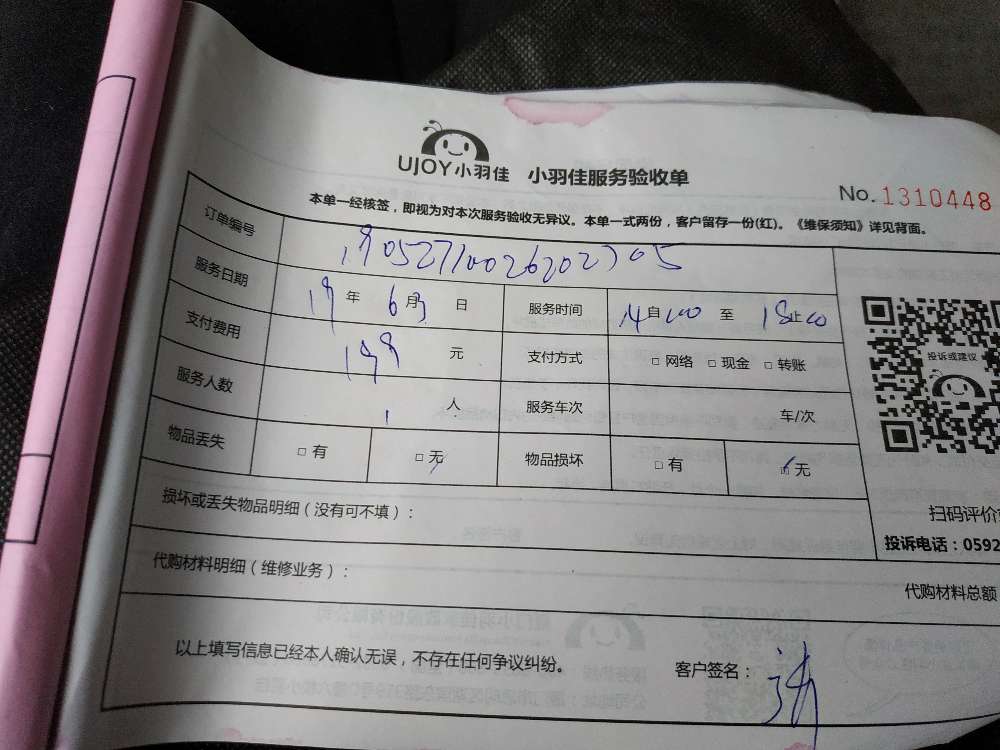 UJOY小羽佳 小羽佳服务验收单
No. 1310448
本单一经核签，即视为对本次服务验收无异议。本单一式两份，客户留存一份(红)。《维保须知》详见背面。
订单编号 19052710026202705
服务日期 19 年 6 月 3 日 服务时间 14 自 00 至 18 止 00
支付费用 199 元 支付方式 □ 网络 □ 现金 □ 转账
服务人数 1 人 服务车次 车/次
物品丢失 □ 有 □ 无 物品损坏 □ 有 □ 无
投诉或建议
损坏或丢失物品明细（没有可不填）：
扫码评价
投诉电话：0592
代购材料明细（维修业务）：
代购材料总额
以上填写信息已经本人确认无误，不存在任何争议纠纷。
客户签名：